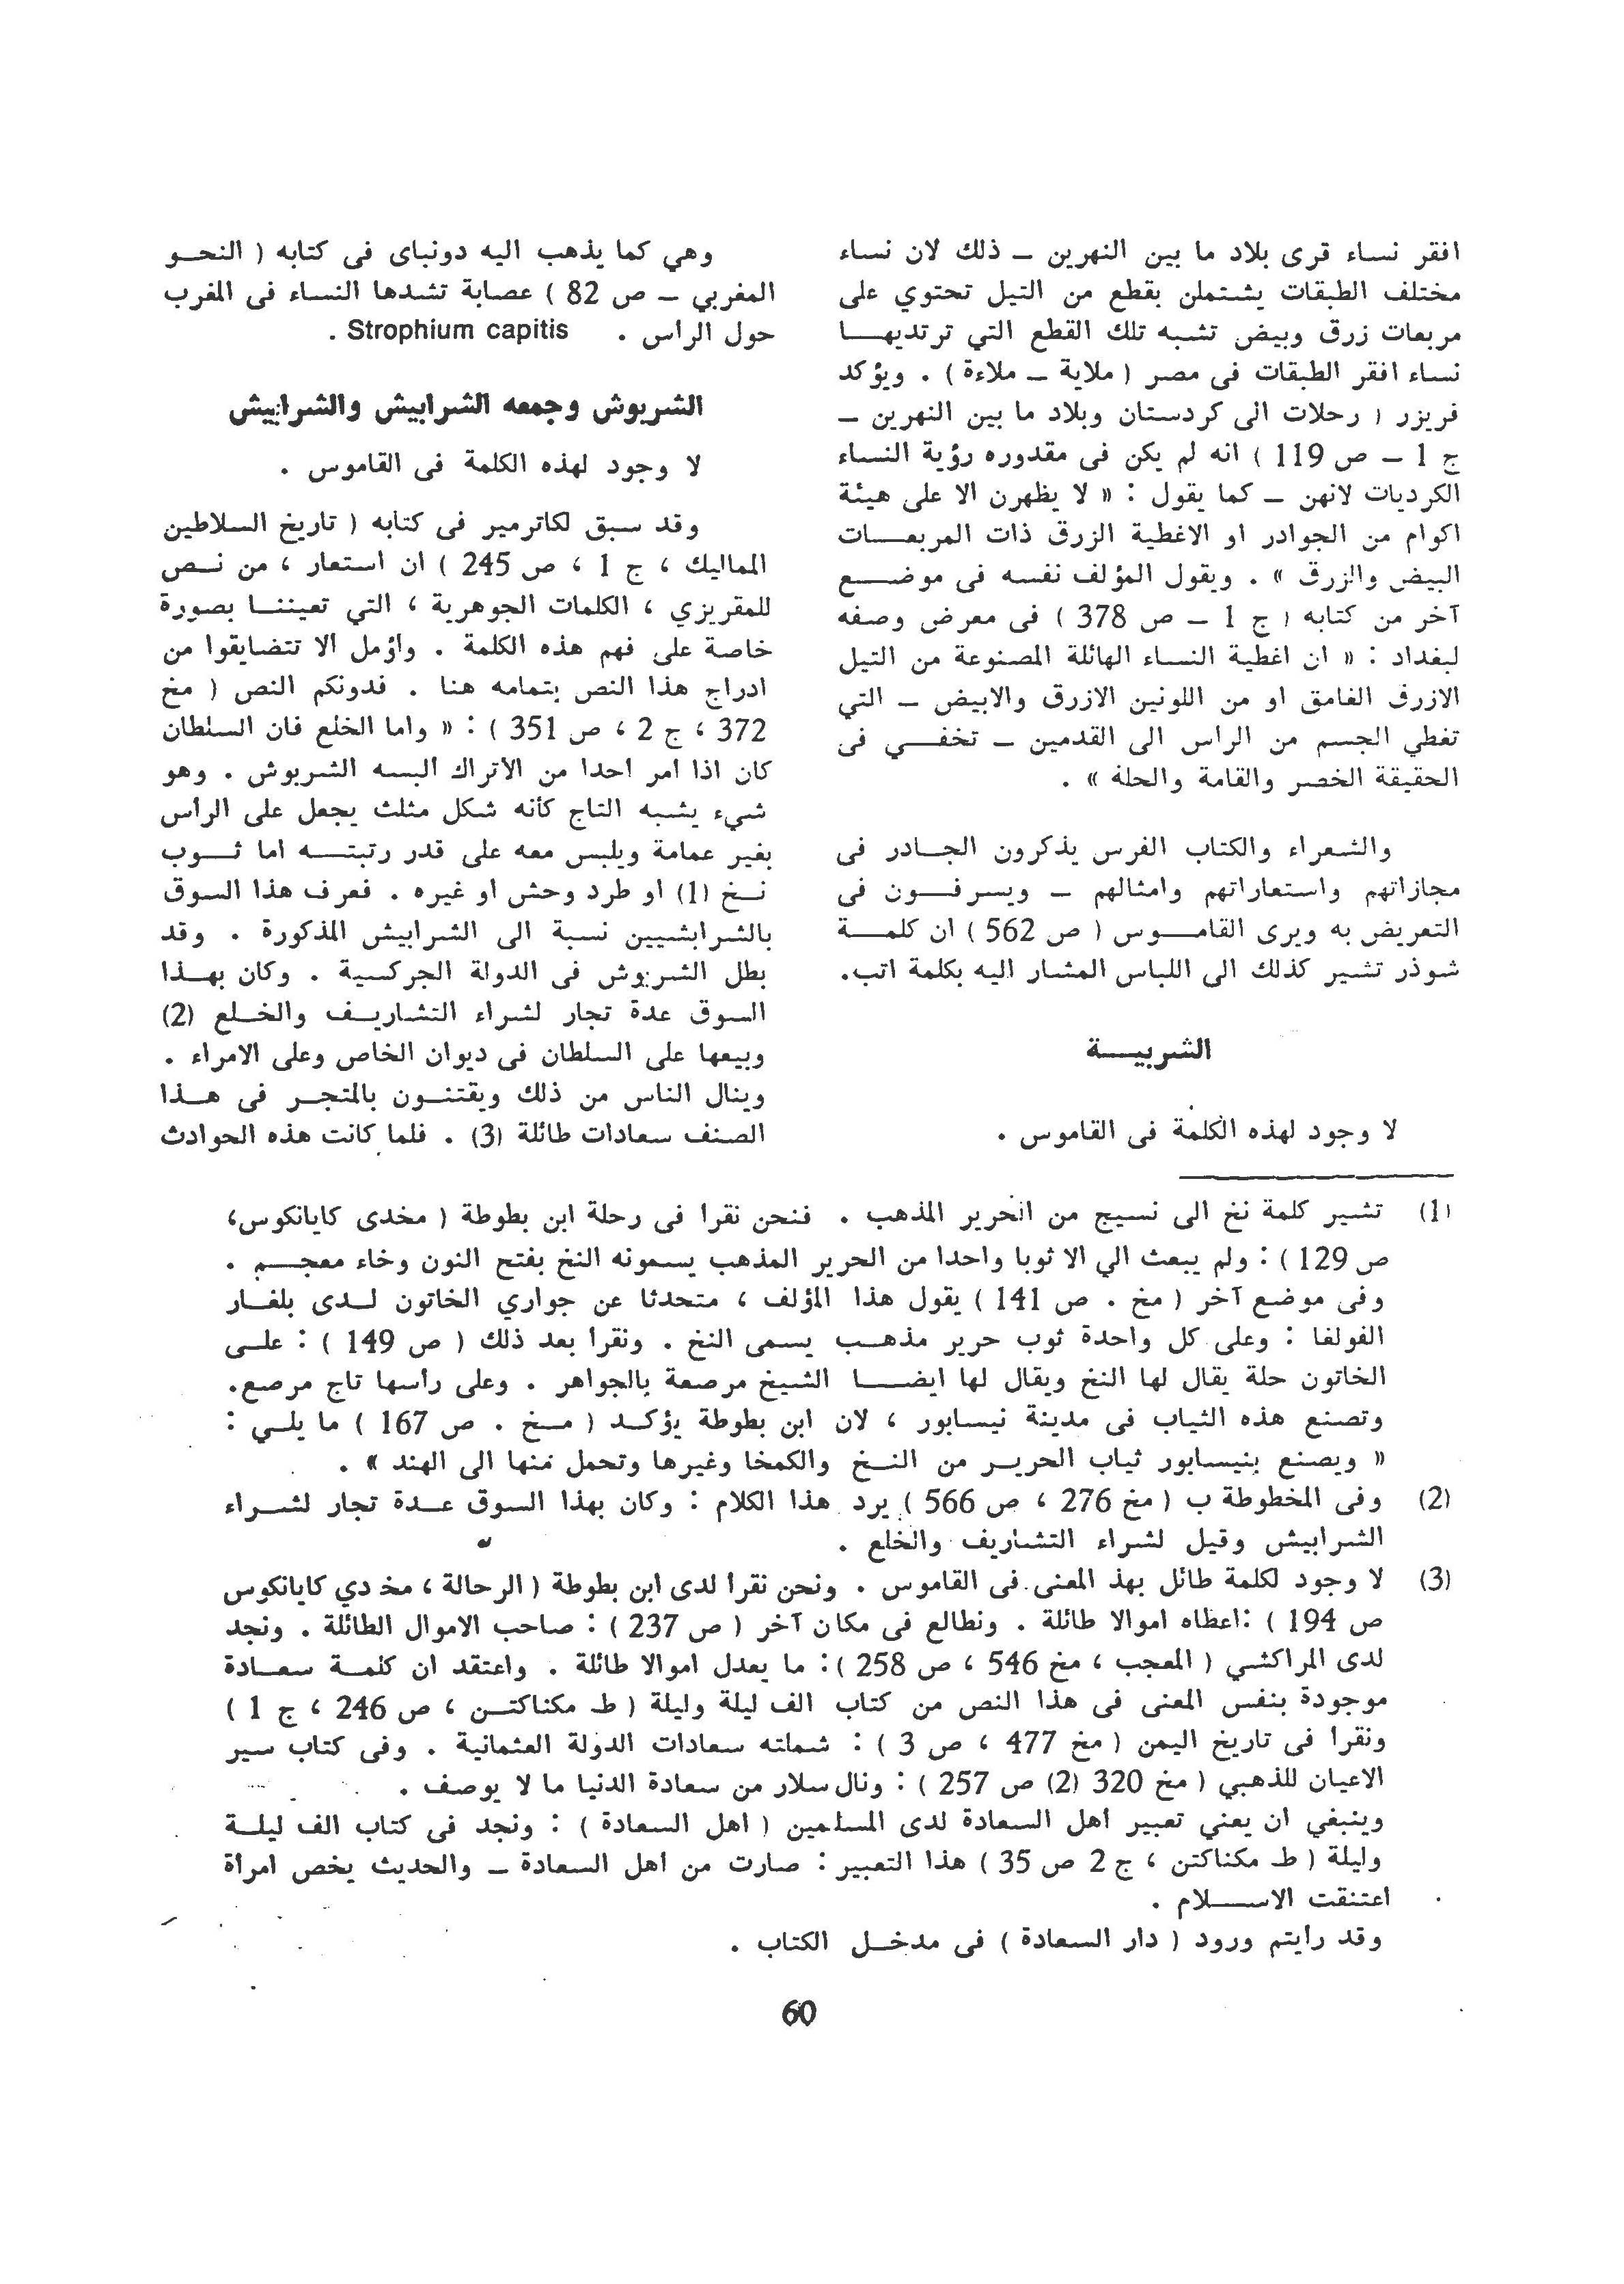 افقر نساء قرى بلاد ما بين النهرين – ذلك لان نساء
مختلف الطبقات يشتملن بقطع من التيل تحتوي على
مربعات زرق وبيض تشبه تلك القطع التي ترتديهـــا
نساء افقر الطبقات فى مصر ( ملاية – ملاءة ) . ويؤكد
فريزر ( رحلات الى كردستان وبلاد ما بين النهرين –
ج 1 – ص 119 ) انه لم يكن فى مقدوره رؤية النساء
الكرديات لانهن – كما يقول : « لا يظهرن الا على هيئة
اكوام من الجوادر او الاغطية الزرق ذات المربعـــات
البيض والزرق » . ويقول المؤلف نفسه فى موضـــع
آخر من كتابه ( ج 1 – ص 378 ) فى معرض وصفه
لبغداد : « ان اغطية النساء الهائلة المصنوعة من التيل
الازرق الغامق او من اللونين الازرق والابيض – التي
تغطي الجسم من الراس الى القدمين – تخفـــي فى
الحقيقة الخصر والقامة والحلة » .
والشعراء والكتاب الفرس يذكرون الجــادر فى
مجازاتهم واستعاراتهم وامثالهم – ويسرفـــون فى
التعريض به ويرى القامـــوس ( ص 562 ) ان كلمـــة
شوذر تشير كذلك الى اللباس المشار اليه بكلمة اتب.
الشربيـــة
لا وجود لهذه الكلمة فى القاموس .
وهي كما يذهب اليه دونباى فى كتابه ( النحــو
المغربي – ص 82 ) عصابة تشدها النساء فى المغرب
حول الراس . Strophium capitis .
الشربوش وجمعه الشرابيش والشرابيش
لا وجود لهذه الكلمة فى القاموس .
وقد سبق لكاترمير فى كتابه ( تاريخ السلاطين
المماليك ، ج 1 ، ص 245 ) ان استعار ، من نــص
للمقريزي ، الكلمات الجوهرية ، التي تعيننــا بصورة
خاصة على فهم هذه الكلمة . واؤمل الا تتضايقوا من
ادراج هذا النص بتمامه هنا . فدونكم النص ( مخ
372 ، ج 2 ، ص 351 ) : « واما الخلع فان السلطان
كان اذا امر احدا من الاتراك البسه الشربوش . وهو
شيء يشبه التاج كأنه شكل مثلث يجعل على الرأس
بغير عمامة ويلبس معه على قدر رتبتـــه اما ثـــوب
نــخ (1) او طرد وحش او غيره . فعرف هذا السوق
بالشرابشيين نسبة الى الشرابيش المذكورة . وقد
بطل الشربوش فى الدولة الجركسية . وكان بهــذا
السوق عدة تجار لشراء التشاريــف والخــلع (2)
وبيعها على السلطان فى ديوان الخاص وعلى الامراء .
وينال الناس من ذلك ويقتنــون بالمتجــر فى هــذا
الصنف سعادات طائلة (3) . فلما كانت هذه الحوادث
(1) تشير كلمة نخ الى نسيج من الحرير المذهب . فنحن نقرا فى رحلة ابن بطوطة ( مخدى كايانكوس،
ص 129 ) : ولم يبعث الي الا ثوبا واحدا من الحرير المذهب يسمونه النخ بفتح النون وخاء معجـــم .
وفى موضع آخر ( مخ . ص 141 ) يقول هذا المؤلف ، متحدثا عن جواري الخاتون لــدى بلغــار
الفولغا : وعلى كل واحدة ثوب حرير مذهــب يسمى النخ . ونقرا بعد ذلك ( ص 149 ) : علــى
الخاتون حلة يقال لها النخ ويقال لها ايضـــا الشيخ مرصعة بالجواهر . وعلى راسها تاج مرصع.
وتصنع هذه الثياب فى مدينة نيسابور ، لان ابن بطوطة يؤكــد ( مــخ . ص 167 ) ما يلــي :
« ويصنع بنيسابور ثياب الحريــر من النــخ والكمخا وغيرها وتحمل منها الى الهند » .
(2) وفى المخطوطة ب ( مخ 276 ، ص 566 ) يرد هذا الكلام : وكان بهذا السوق عــدة تجار لشــراء
الشرابيش وقيل لشراء التشاريف والخلع .
(3) لا وجود لكلمة طائل بهذ المعنى فى القاموس . ونحن نقرا لدى ابن بطوطة ( الرحالة ، مخ دي كايانكوس
ص 194 ) :اعطاه اموالا طائلة . ونطالع فى مكان آخر ( ص 237 ) : صاحب الاموال الطائلة . ونجد
لدى المراكشي ( المعجب ، مخ 546 ، ص 258 ) : ما يعدل اموالا طائلة . واعتقد ان كلمــة سعــادة
موجودة بنفس المعنى فى هذا النص من كتاب الف ليلة وليلة ( ط مكناكتــن ، ص 246 ، ج 1 )
ونقرا فى تاريخ اليمن ( مخ 477 ، ص 3 ) : شملته سعادات الدولة العثمانية . وفى كتاب سير
الاعيان للذهبي ( مخ 320 (2) ص 257 ) : ونال سلار من سعادة الدنيا ما لا يوصف .
وينبغي ان يعني تعبير اهل السعادة لدى المسلمين ( اهل السعادة ) : ونجد فى كتاب الف ليلــة
وليلة ( ط مكناكتن ، ج 2 ص 35 ) هذا التعبير : صارت من اهل السعادة – والحديث يخص امرأة
اعتنقت الاســـلام .
وقد رايتم ورود ( دار السعادة ) فى مدخــل الكتاب .
60